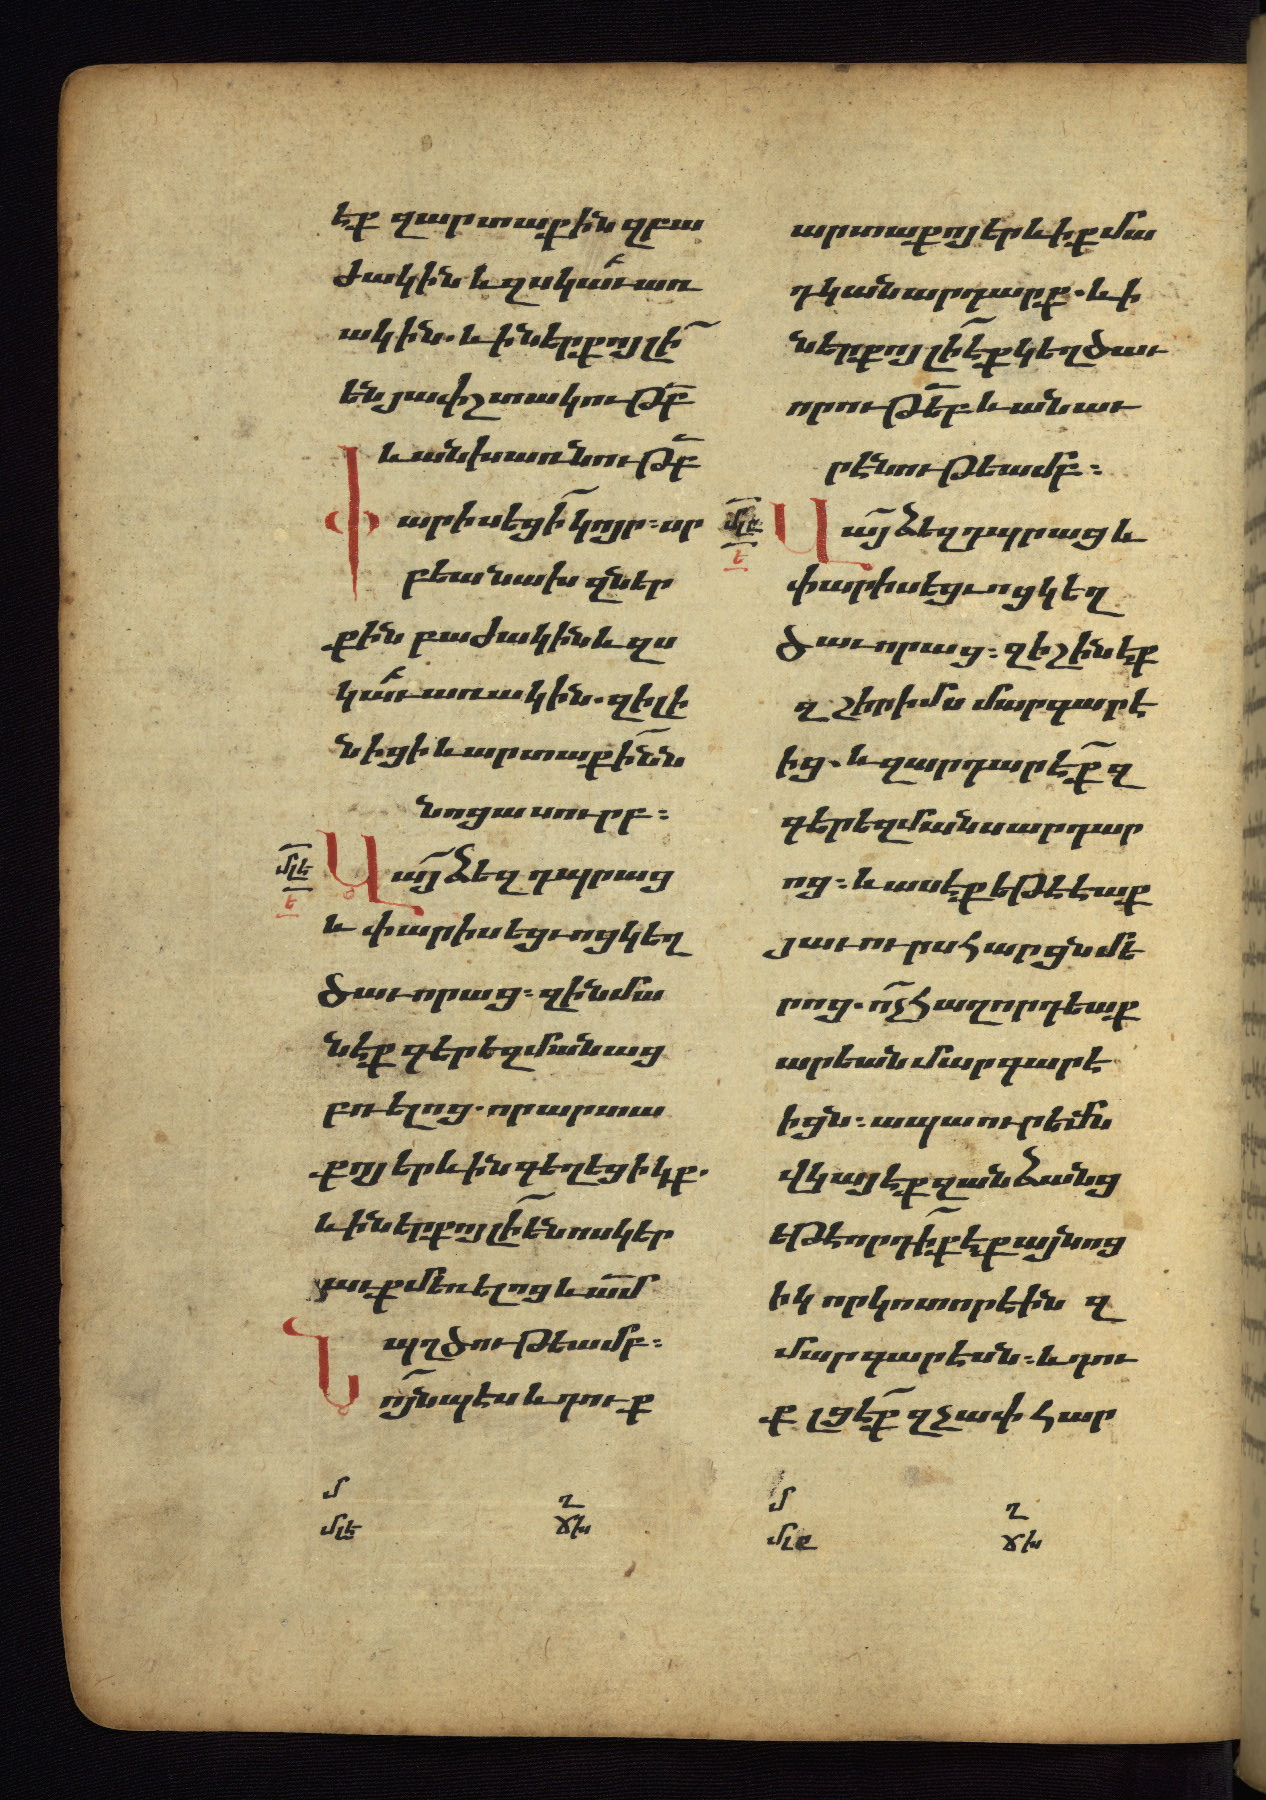 էք զարտաքին զբա
ժակին և զսկաւառ
ակին. և ի ներքոյ լի՟
են յափշտակութբ՟
և անխառնութբ՟
Փարիսեցի՟ կոյր: սր
բեա նախ զներ
քին բաժակին և զս
կաւառակին. զի լի
նիցի և արտաքի՟նն
նոցա սուրբ:
մլե
ե
Վա՟յ ձեզ դպրաց
և փարիսեցւոց կեղ
ծաւորաց: զի նմա
նէք գերեզմանաց
բռելոց. որ արտա
քոյ երևին գեղեցիկք.
և ի ներքոյ լի՟ են ոսկեր
աւք մեռելոց և ա՟մ
պղծութեամբ:
Նո՟յնպէս և դուք
արտաքոյ երևիք մա
րդկան արդարք. և ի
ներքոյ լի՟ էք կեղծաւ
որութե՟բ և անաւ
րէնութեամբ:
մլը
ե
Վա՟յ ձեզ դպրաց և
փարիսեցւոց կեղ
ծաւորաց: զի շինէք
զշիրիմս մարգարէ
ից. և զարդարէ՟ք զ
գերեզմանս արդար
ոց: և ասէք եթէ էաք
յաւուրս հարցն մե
րոց. ո՟չ հաղորդեաք
արեան մարգարէ
իցն: ապա ուրեմն
վկայէք զանձանց
եթէ որդի՟ք էք այնոց
իկ որ կոտորէին զ
մարգարէսն: և դու
ք լցէ՟ք զչափ հար
մ
մլե
ղ
ճխ
մ
մլը
ղ
ճխ